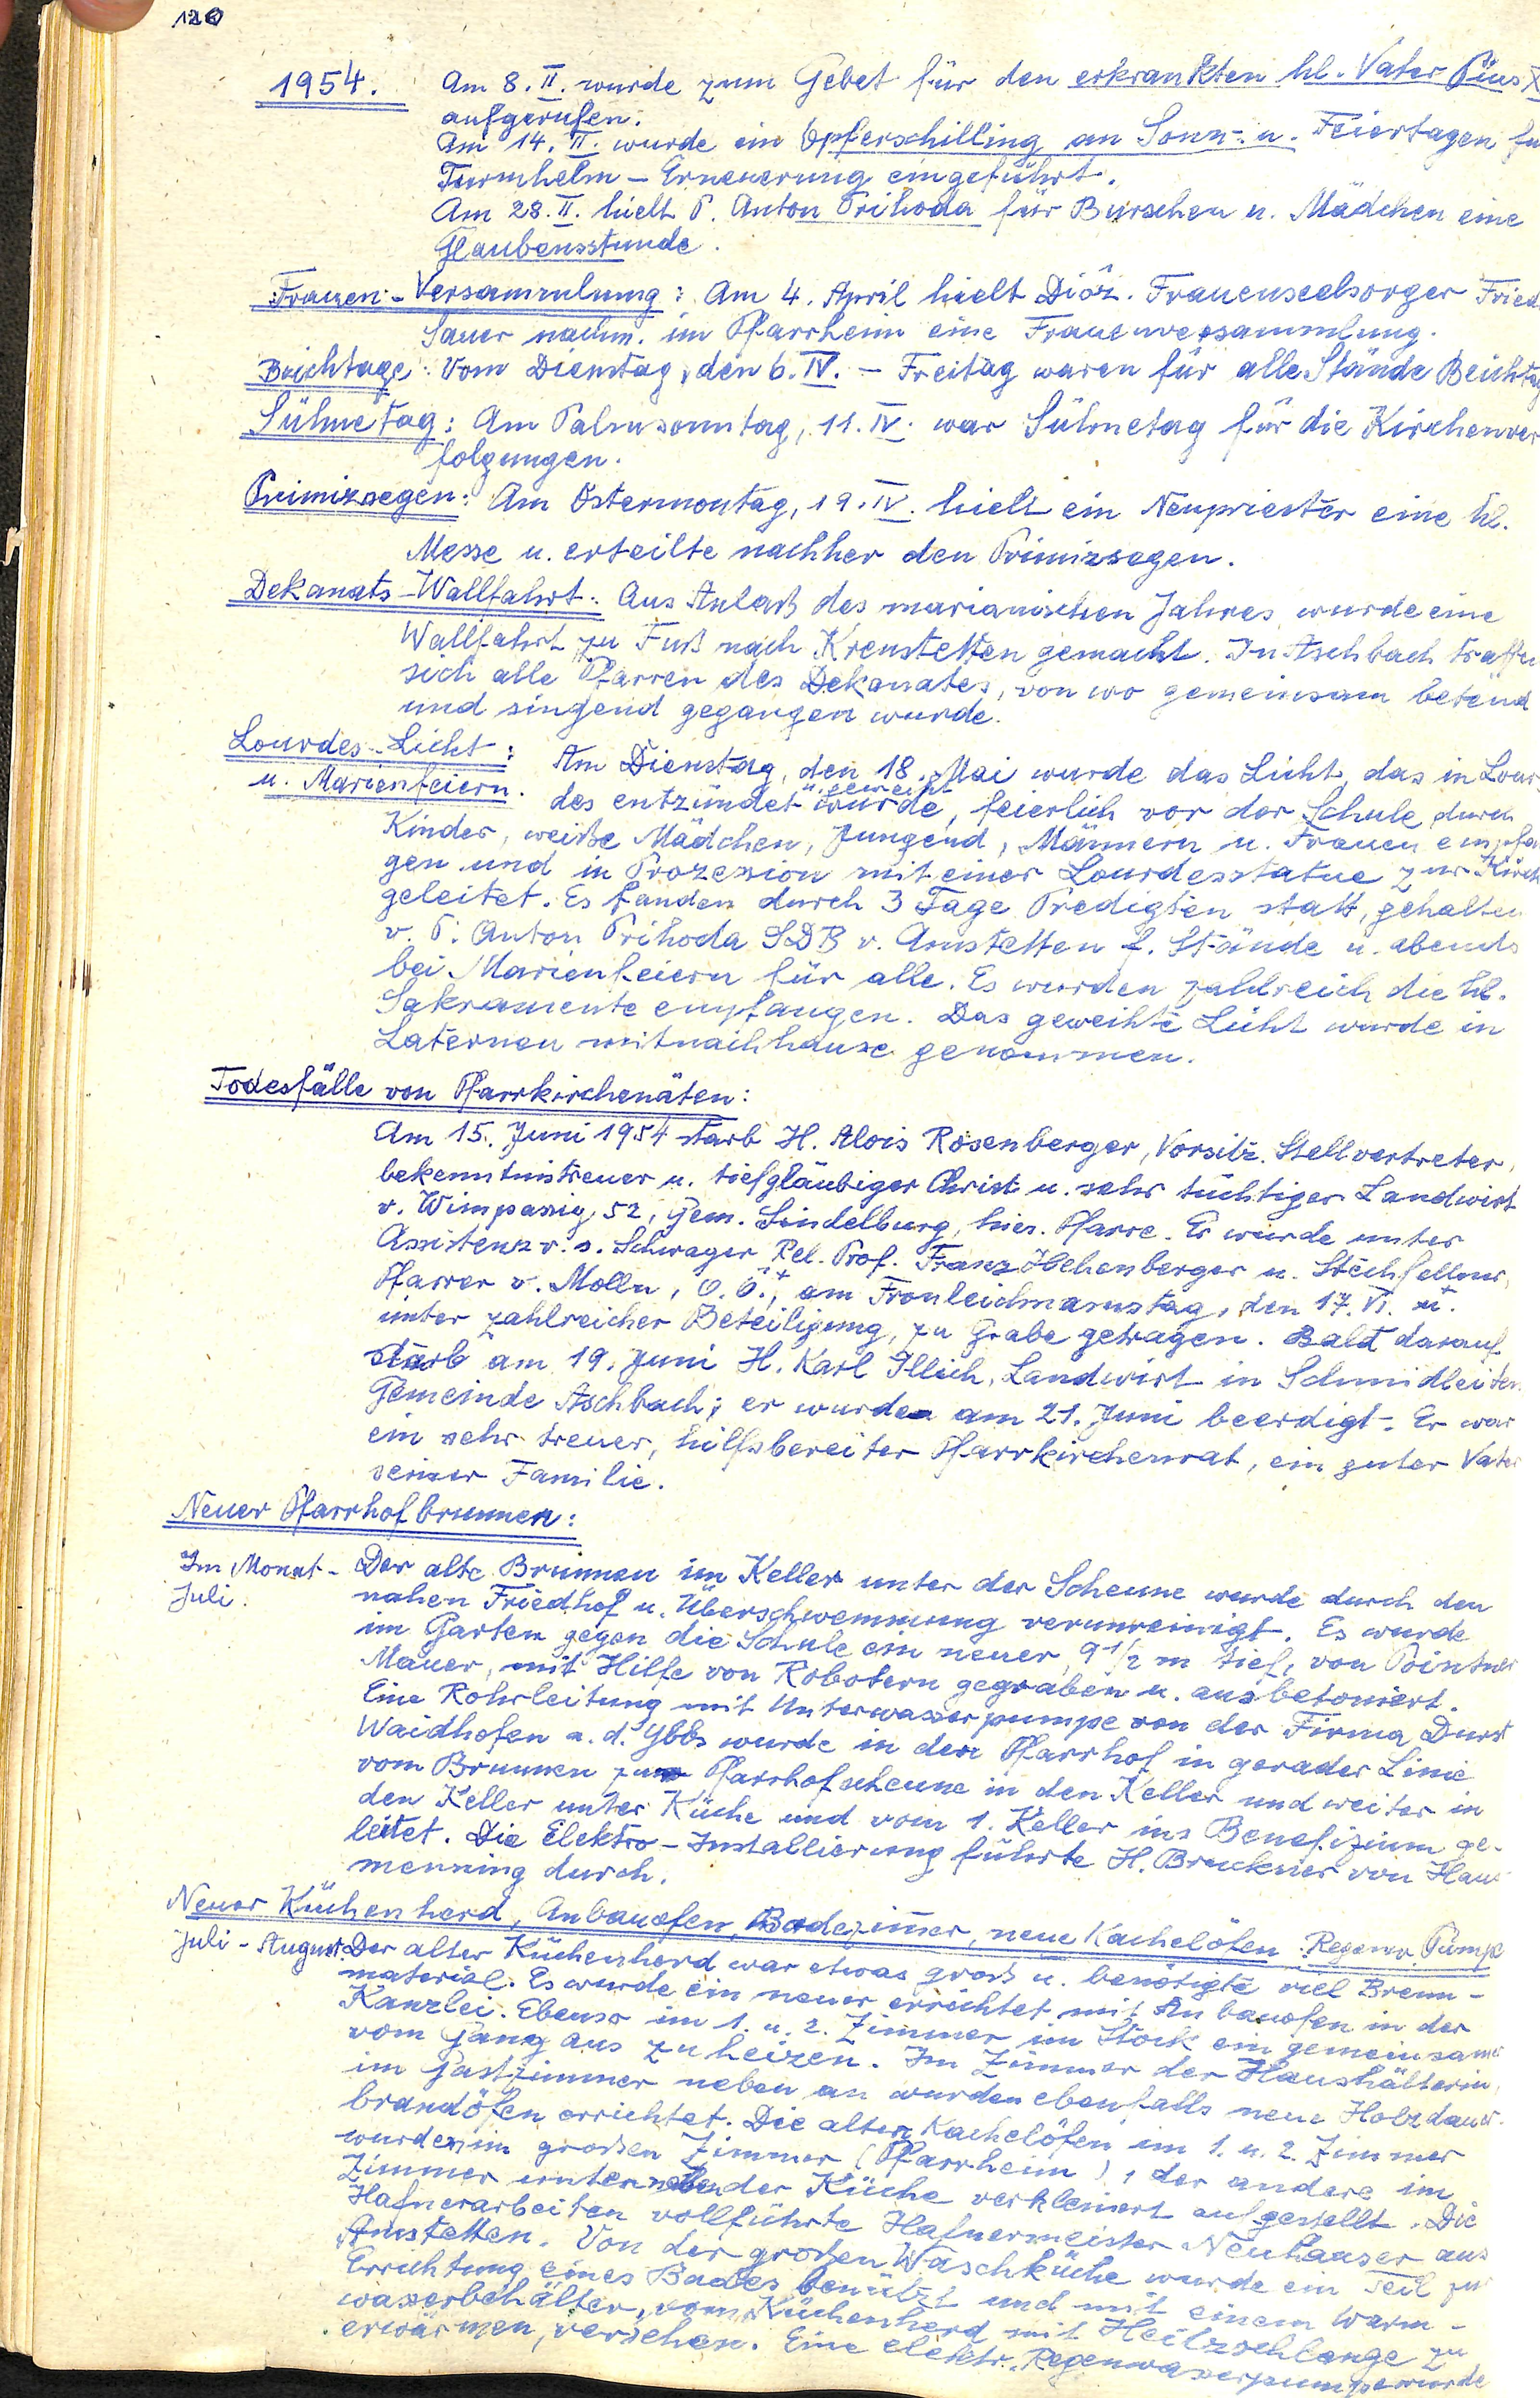 120
1954. Am 8. II. wurde zum Gebet für den erkrankten hl. Vater Pius X
aufgerufen.
Am 14. II. wurde ein Opferschilling an Sonn- u. Feiertagen fü
Turmhelm - Erneuerung eingeführt.
Am 28. II. hielt P. Anton Prihoda für Burschen u. Mädchen eine
Glaubensstunde.
Frauen-Versammlung: Am 4. April hielt Diöz. Frauenseelsorger Fried
Sauer nachm. im Pfarrheim eine Frauenversammlung.
Beichtage: Vom Dienstag, den 6. IV. - Freitag waren für alle Stände Beichtag
Sühnetag: Am Palmsonntag, 11. IV. war Sühnetag für die Kirchenver
folgungen.
Primizsegen: Am Ostermontag, 19. IV. hielt ein Neupriester eine hl.
Messe u. erteilte nachher den Primizsegen.
Dekanats-Wallfahrt: Aus Anlaß des marianischen Jahres wurde eine
Wallfahrt zu Fuß nach Krenstetten gemacht. In Aschbach traffen
sich alle Pfarren des Dekanates, von wo gemeinsam betend
und singend gegangen wurde.
Lourdes-Licht: Am Dienstag, den 18. Mai wurde das Licht, das in Lour-
u. Marienfeiern. des entzündet u. geweiht wurde, feierlich vor der Schule durch
Kinder, weiße Mädchen, Jungend, Männern u. Frauen empfan
gen und in Prozession mit einer Lourdesstatue zur Kirch
geleitet. Es fanden durch 3 Tage Predigten statt, gehalten
v. P. Anton Prihoda SDB v. Amstetten f. Stände u. abends
bei Marienfeiern für alle. Es wurden zahlreich die hl.
Sakramente empfangen. Das geweihte Licht wurde in
Laternen mitnachhause genommen.
Todesfälle von Pfarrkirchenäten:
Am 15. Juni 1954 starb H. Alois Rosenberger, Vorsitz. Stellvertreter,
bekenntnistreuer u. tiefgläubiger Christ u. sehr tüchtiger Landwirt
v. Wimpassig 52, Gem. Sindelburg, hies. Pfarre. Er wurde unter
Assistenz v. s. Schwager Rel. Prof. Franz Öchenberger u. Stechfellner,
Pfarrer v. Molln, O.Ö., am Fronleichnamstag, den 17. VI. u.
unter zahlreicher Beteiligung, zu Grabe getragen. Bald darauf
starb am 19. Juni H. Karl Illich, Landwirt in Schmidleiten
Gemeinde Aschbach; er wurde am 21. Juni beerdigt. Er war
ein sehr treuer, hilfsbereiter Pfarrkirchenrat, ein guter Vater
seiner Familie.
Neuer Pfarrhofbrunnen:
Im Monat - Der alte Brunnen im Keller unter der Scheune wurde durch den
Juli. nahen Friedhof u. Überschwemmung verunreinigt. Es wurde
im Garten gegen die Schule ein neuer, 9 1/2 m tief, von Pointner
Mauer, mit Hilfe von Robotern gegraben u. ausbetoniert.
Eine Rohrleitung mit Unterwasserpumpe von der Firma Durst
Waidhofen a. d. Ybbs wurde in den Pfarrhof in gerader Linie
vom Brunnen zur Pfarrhofscheune in den Keller und weiter in
den Keller unter Küche und vom 1. Keller ins Benefizium ge-
leitet. Die Elektro-Installierung führte H. Bruckner von Haus
menning durch.
Neuer Küchenherd, Anbauofen, Badezimmer, neue Kachelöfen. Regenw. Pumpe
Juli - August. Der alter Küchenherd war etwas groß u. benötigte viel Brenn-
material. Es wurde ein neuer errichtet mit Anbauofen in der
Kanzlei. Ebenso im 1. u. 2. Zimmer im Stock ein gemeinsamer
vom Gang aus zu heizen. Im Zimmer der Haushälterin,
im Gastzimmer neben an wurden ebenfalls neue Holzdauer-
brandöfen errichtet. Die alten Kachelöfen im 1. u. 2. Zimmer
wurden im großen Zimmer (Pfarrheim), der andere im
Zimmer unten neben der Küche verkleinert aufgestellt. Die
Hafnerarbeiten vollführte Hafnermeister Neuhauser aus
Amstetten. Von der großen Waschküche wurde ein Teil zur
Errichtung eines Bades benützt und mit einem Warm-
wasserbehälter, vom Küchenherd mit Heitzschlange zu
erwärmen, versehen. Eine elektr. Regenwasserpumpe wurde